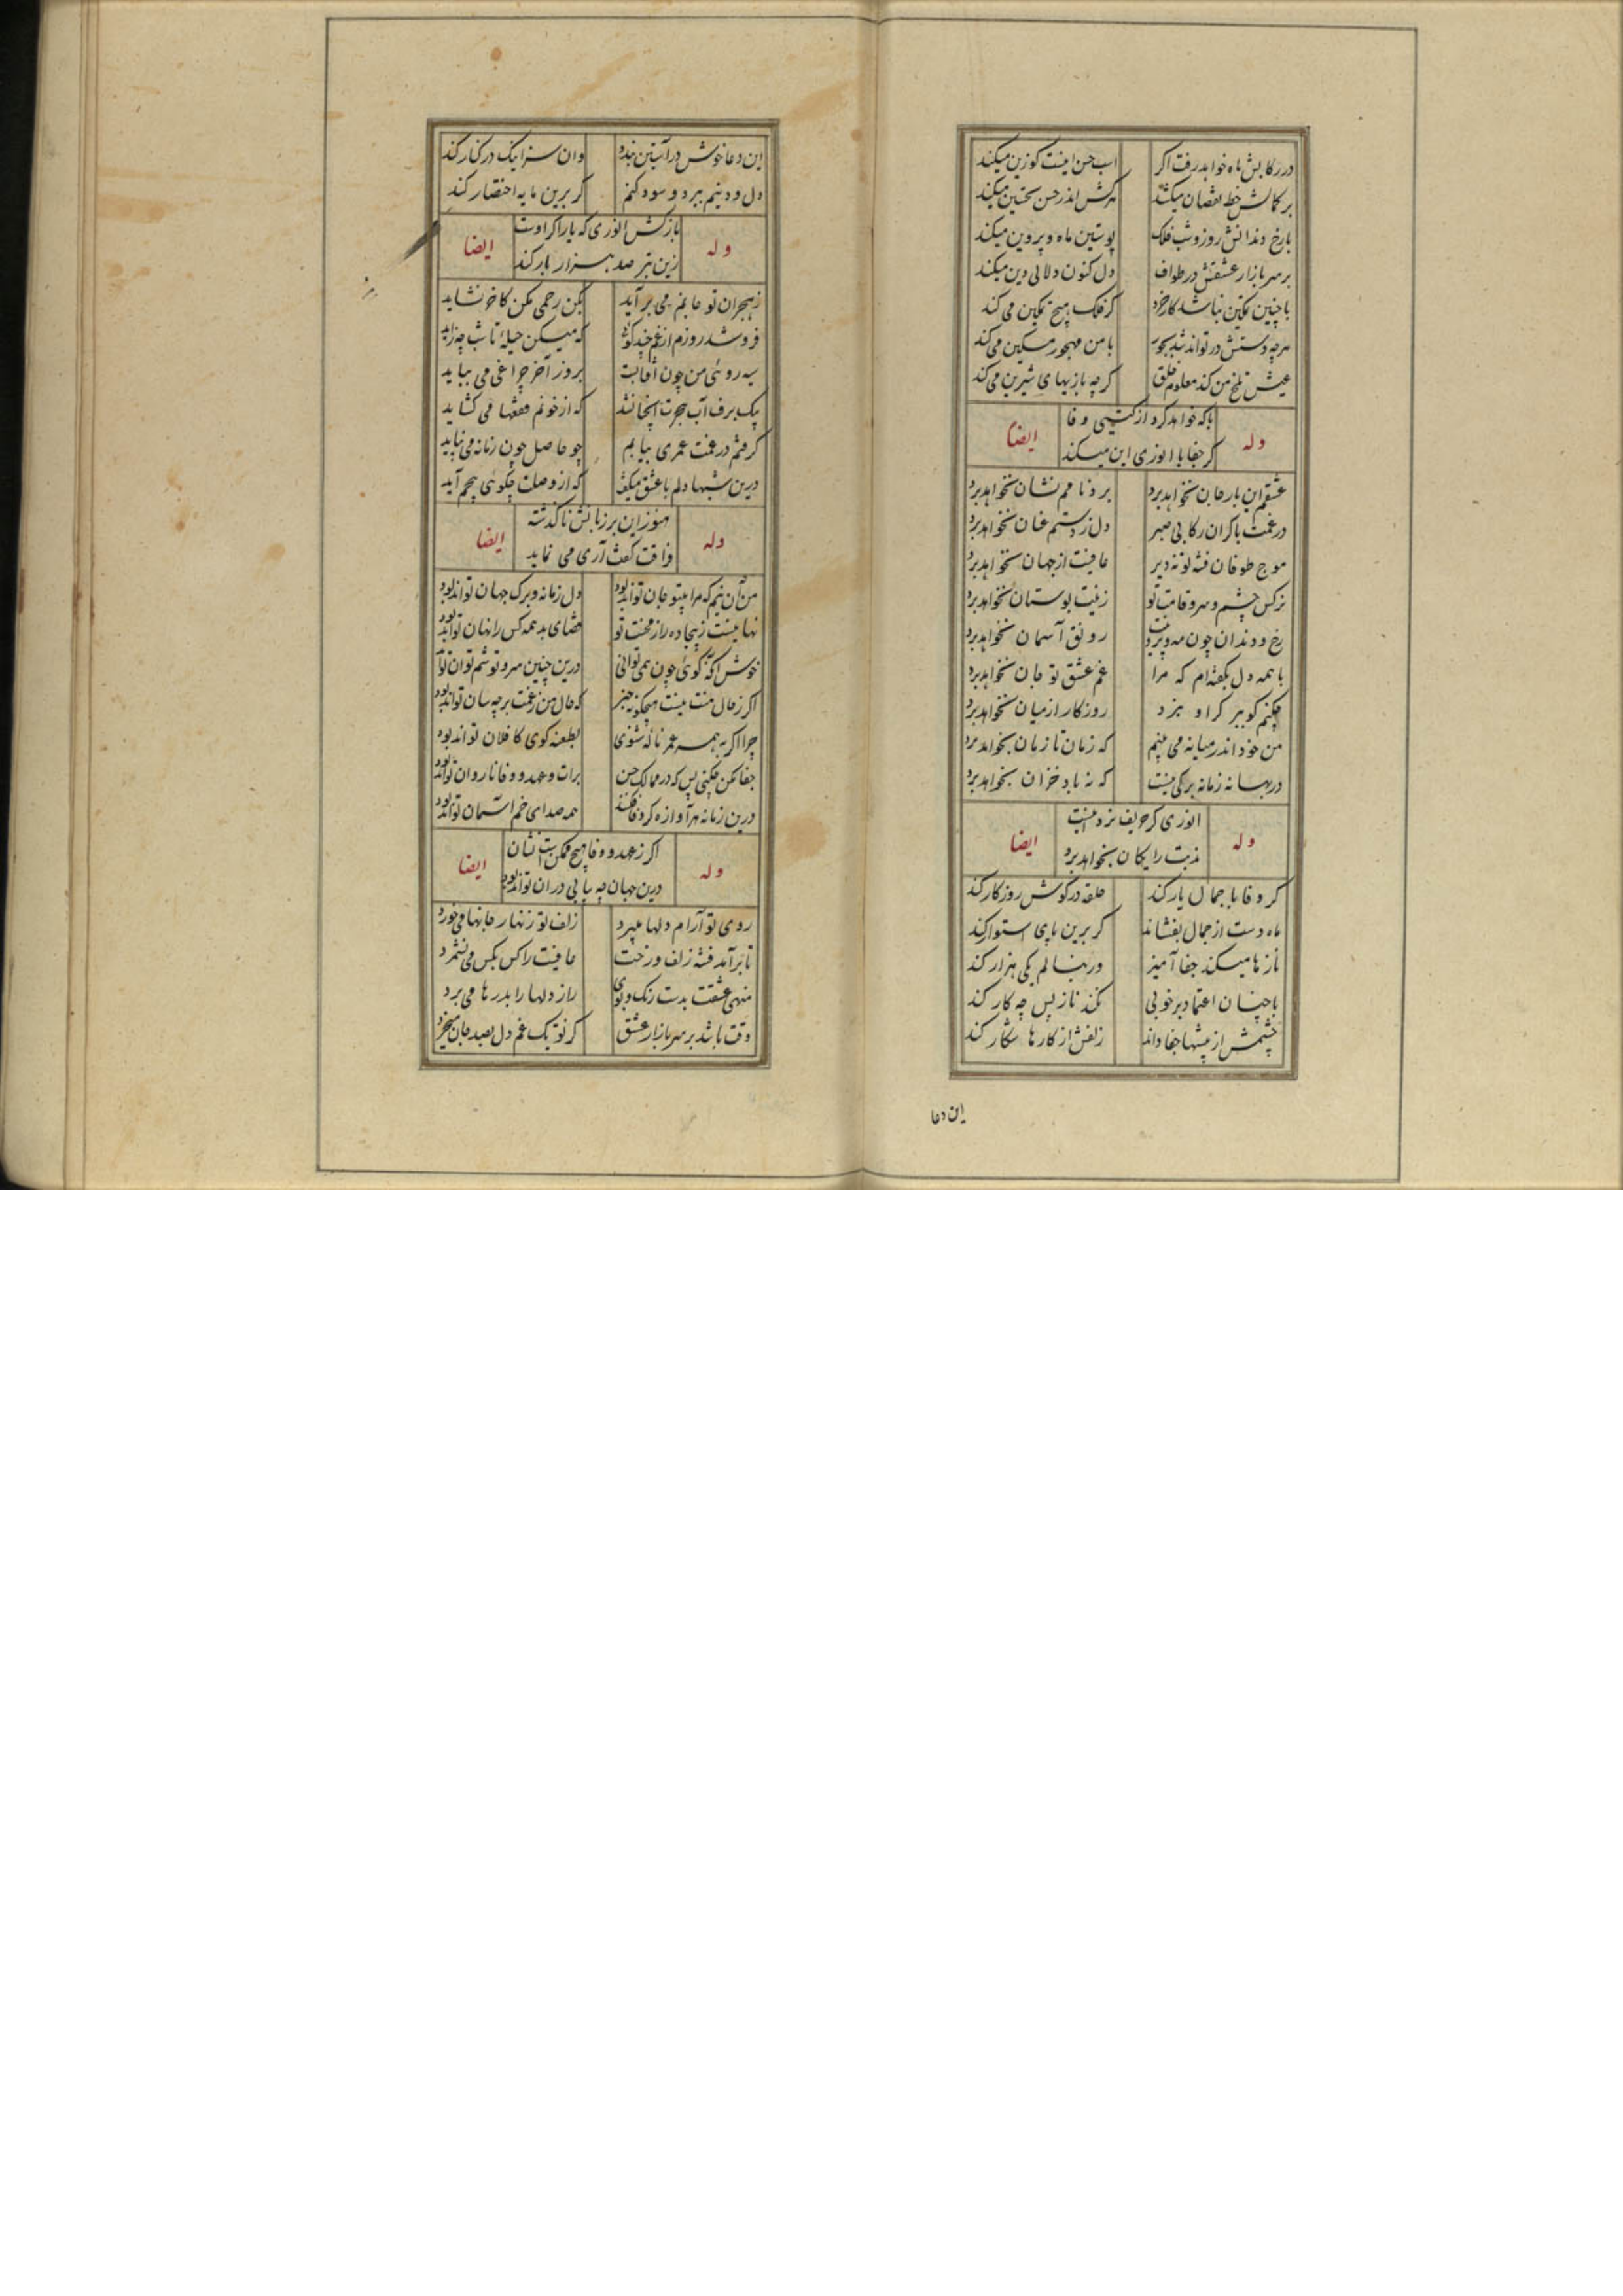 در رکابش ماه خواهد رفت اگر اسب حسن اینست کو زین میکند
بر کمالش خط نقصان میکشد هرکش اندر حسن تحسین میکند
با رخ و دندانش روز و شب فلک پوستین ماه و پروین میکند
بر سر بازار عشقش در طواف دل کنون دلالی دین میکند
با چنین تمکین نباشد کار خرد گر فلک هیچ تمکین می کند
هرچه دستش در تواند شد بجور با من مهجور مسکین می کند
عیش تلخ من کند معلوم خلق گرچه بازیهای شیرین می کند
وله با که خواهد کرد از گیتی وفا ایضا
گر جفا با انوری این میکند
عشقم این بار جان بخواهد برد برد نامم نشان بخواهد برد
در غمت با گران رکابی صبر دل ز دستم عنان بخواهد برد
موج طوفان فتنه تو نه دیر عافیت از جهان بخواهد برد
نرگس چشم و سرو قامت تو زینت بوستان بخواهد برد
رخ و دندان چون مه و پروینت رونق آسمان بخواهد برد
با همه دل بگفته ام که مرا غم عشق تو جان بخواهد برد
چکنم گو ببر گر او نبرد روزگار از میان بخواهد برد
من خود اندر میانه می بینم که زمان تا زمان بخواهد برد
در بهانه زمانه برگی نیست که نه باد خزان بخواهد برد
وله انوری گر حریف نرد اینست ایضا
ندبت رایگان بخواهد برد
گر وفا با جمال یار کند حلقه در گوش روزگار کند
ماه دست از جمال بفشاند گر برین پای استوار کند
ناز ها میکند جفا آمیز ور بنالم یکی هزار کند
با چنان اعتماد بر خوبی نکند ناز پس چه کار کند
چشمش از پیشها جفا داند زلفش از کارها شکار کند
این دعا
این دعا خوش در آستین بنهد وان سزا نیک در کنار کند
دل و دینم ببرد و سود کنم گر برین مایه اختصار کند
وله بارکش انوری که یار اگر اوست ایضا
زین بتر صد هزار بار کند
ز هجران تو جانم می برآید بکن رحمی مکن کاخر نشاید
فرو شد روزم از غم چند گوئی که میکن حیلهٔ تا شب چه زاید
سیه روئی من چون آفتابست بروز آخر چراغی می بباید
بیک برف آب هجرت آنچنانند که از خونم فقعها می گشاید
گرفتم در غمت عمری بپایم چو حاصل چون زمانه می نپاید
درین شبها دلم با عشق میگفت که از وصلت چگوئی هیچم آید
وله هنوز این بر زبانش ناگذشته ایضا
فراقت گفت آری می نماید
من آن نیم که مرا بیتو جان تواند بود دل زمانه و برگ جهان تواند بود
نهان نیست ز بیجاده راز محنت تو قضای بد همه کس را نهان تواند بود
خوش آنکه گوئی چون همی توانی درین چنین سر و توشم توان تواند
اگر ز حال منت نیست هیچگونه خبر که حال من ز غمت بر چه سان تواند بود
چرا اگر به همه عمر ناله شنوی بطعنه گوی کآ فلان تواند بود
جفا مکن چکنی بس که در ممالک حسن برات و عهد و وفا ناروان تواند بود
درین زمانه هر آوازه کز وفا فکنند همه صدای خم آسمان تواند بود
وله اگر ز عهد و وفا هیچ ممکن است نشان ایضا
درین جهان چه بیابی در آن تواند بود
روی تو آرام دلها میبرد زلف تو زنهار جانها می خورد
تا برآمد فتنه زلف و رخت عافیت را کس بکس می نشمرد
منهی عشقت بدست رنگ و بوی راز دلها را بدرها می برد
وقت باشد بر سر بازار عشق کز تو یک غم دل بصد جان میخرد